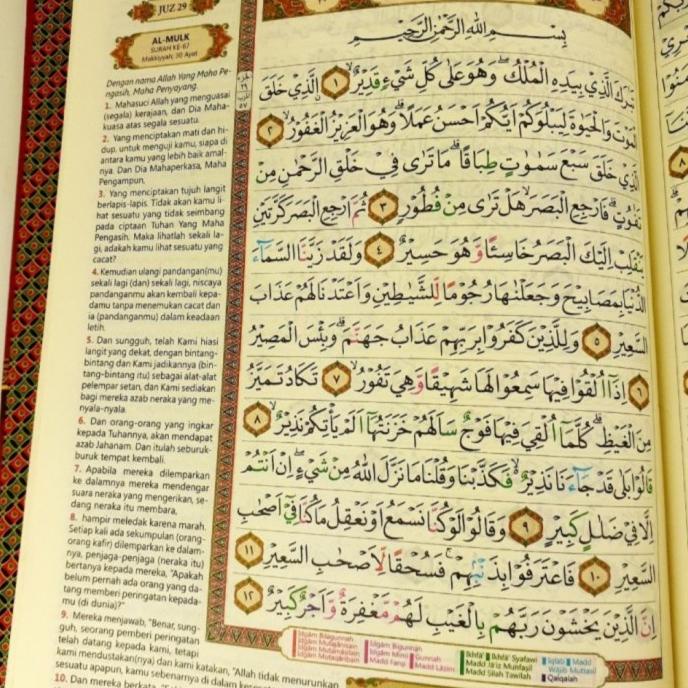 JUZ 29
AL-MULK
SURAH KE-67
Makkiyyah; 30 Ayat
Dengan nama Allah Yang Maha Pe-
ngasih, Maha Penyayang.
1. Mahasuci Allah yang menguasai
(segala) kerajaan, dan Dia Maha-
kuasa atas segala sesuatu.
2. Yang menciptakan mati dan hi-
dup, untuk menguji kamu, siapa di
antara kamu yang lebih baik amal-
nya. Dan Dia Mahaperkasa, Maha
Pengampun.
3. Yang menciptakan tujuh langit
berlapis-lapis. Tidak akan kamu li-
hat sesuatu yang tidak seimbang
pada ciptaan Tuhan Yang Maha
Pengasih. Maka lihatlah sekali la-
gi, adakah kamu lihat sesuatu yang
cacat?
4. Kemudian ulangi pandangan(mu)
sekali lagi (dan) sekali lagi, niscaya
pandanganmu akan kembali kepa-
damu tanpa menemukan cacat dan
ia (pandanganmu) dalam keadaan
letih.
5. Dan sungguh, telah Kami hiasi
langit yang dekat, dengan bintang-
bintang dan Kami jadikannya (bin-
tang-bintang itu) sebagai alat-alat
pelempar setan, dan Kami sediakan
bagi mereka azab neraka yang me-
nyala-nyala.
6. Dan orang-orang yang ingkar
kepada Tuhannya, akan mendapat
azab Jahanam. Dan itulah seburuk-
buruk tempat kembali.
7. Apabila mereka dilemparkan
ke dalamnya mereka mendengar
suara neraka yang mengerikan, se-
dang neraka itu membara,
8. hampir meledak karena marah.
Setiap kali ada sekumpulan (orang-
orang kafir) dilemparkan ke dalam-
nya, penjaga-penjaga (neraka itu)
bertanya kepada mereka, "Apakah
belum pernah ada orang yang da-
tang memberi peringatan kepada-
mu (di dunia)?"
9. Mereka menjawab, "Benar, sung-
guh, seorang pemberi peringatan
telah datang kepada kami, tetapi
kami mendustakan(nya) dan kami katakan, "Allah tidak menurunkan
sesuatu apapun, kamu sebenarnya di dalam
10. Dan mereka berkata,
بِسْمِ اللّٰهِ الرَّحْمٰنِ الرَّحِيْمِ
تَبٰرَكَ الَّذِيْ بِيَدِهِ الْمُلْكُۖ وَهُوَ عَلٰى كُلِّ شَيْءٍ قَدِيْرٌۙ ١ الَّذِيْ خَلَقَ
الْمَوْتَ وَالْحَيٰوةَ لِيَبْلُوَكُمْ اَيُّكُمْ اَحْسَنُ عَمَلًاۗ وَهُوَ الْعَزِيْزُ الْغَفُوْرُۙ ٢
الَّذِيْ خَلَقَ سَبْعَ سَمٰوٰتٍ طِبَاقًاۗ مَا تَرٰى فِيْ خَلْقِ الرَّحْمٰنِ مِنْ
تَفٰوُتٍۗ فَارْجِعِ الْبَصَرَۙ هَلْ تَرٰى مِنْ فُطُوْرٍ ٣ ثُمَّ ارْجِعِ الْبَصَرَ كَرَّتَيْنِ
يَنْقَلِبْ اِلَيْكَ الْبَصَرُ خَاسِئًا وَّهُوَ حَسِيْرٌ ٤ وَلَقَدْ زَيَّنَّا السَّمَاۤءَ
الدُّنْيَا بِمَصَابِيْحَ وَجَعَلْنٰهَا رُجُوْمًا لِّلشَّيٰطِيْنِ وَاَعْتَدْنَا لَهُمْ عَذَابَ
السَّعِيْرِ ٥ وَلِلَّذِيْنَ كَفَرُوْا بِرَبِّهِمْ عَذَابُ جَهَنَّمَۗ وَبِئْسَ الْمَصِيْرُ
٦ اِذَآ اُلْقُوْا فِيْهَا سَمِعُوْا لَهَا شَهِيْقًا وَّهِيَ تَفُوْرُۙ ٧ تَكَادُ تَمَيَّزُ
مِنَ الْغَيْظِۗ كُلَّمَآ اُلْقِيَ فِيْهَا فَوْجٌ سَاَلَهُمْ خَزَنَتُهَآ اَلَمْ يَأْتِكُمْ نَذِيْرٌۙ ٨
قَالُوْا بَلٰى قَدْ جَاۤءَنَا نَذِيْرٌۙ فَكَذَّبْنَا وَقُلْنَا مَا نَزَّلَ اللّٰهُ مِنْ شَيْءٍۖ اِنْ اَنْتُمْ
اِلَّا فِيْ ضَلٰلٍ كَبِيْرٍ ٩ وَقَالُوْا لَوْ كُنَّا نَسْمَعُ اَوْ نَعْقِلُ مَا كُنَّا فِيْٓ اَصْحٰبِ
السَّعِيْرِ ١٠ فَاعْتَرَفُوْا بِذَنْۢبِهِمْۚ فَسُحْقًا لِّاَصْحٰبِ السَّعِيْرِ ١١
اِنَّ الَّذِيْنَ يَخْشَوْنَ رَبَّهُمْ بِالْغَيْبِ لَهُمْ مَّغْفِرَةٌ وَّاَجْرٌ كَبِيْرٌ ١٢